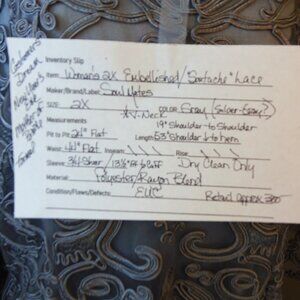 Inventory Slip
Item: Woman's 2X Embellished/"Soutache" Lace
Maker/Brand/Label: Soul Mates
SIZE: 2X COLOR: Gray (Silver-Gray)
Measurements * V-Neck 19" Shoulder to Shoulder
Pit to Pit: 24" Flat Length: 53" Shoulder to hem
Waist: 44" Flat Inseam: Rise:
Sleeve: 3/4 Sheer / 13½" to Cuff Dry Clean Only
Material: Polyester/Rayon Blend
Condition/Flaws/Defects: EUC
Retail Approx 300
New Year's
Mother
Formal